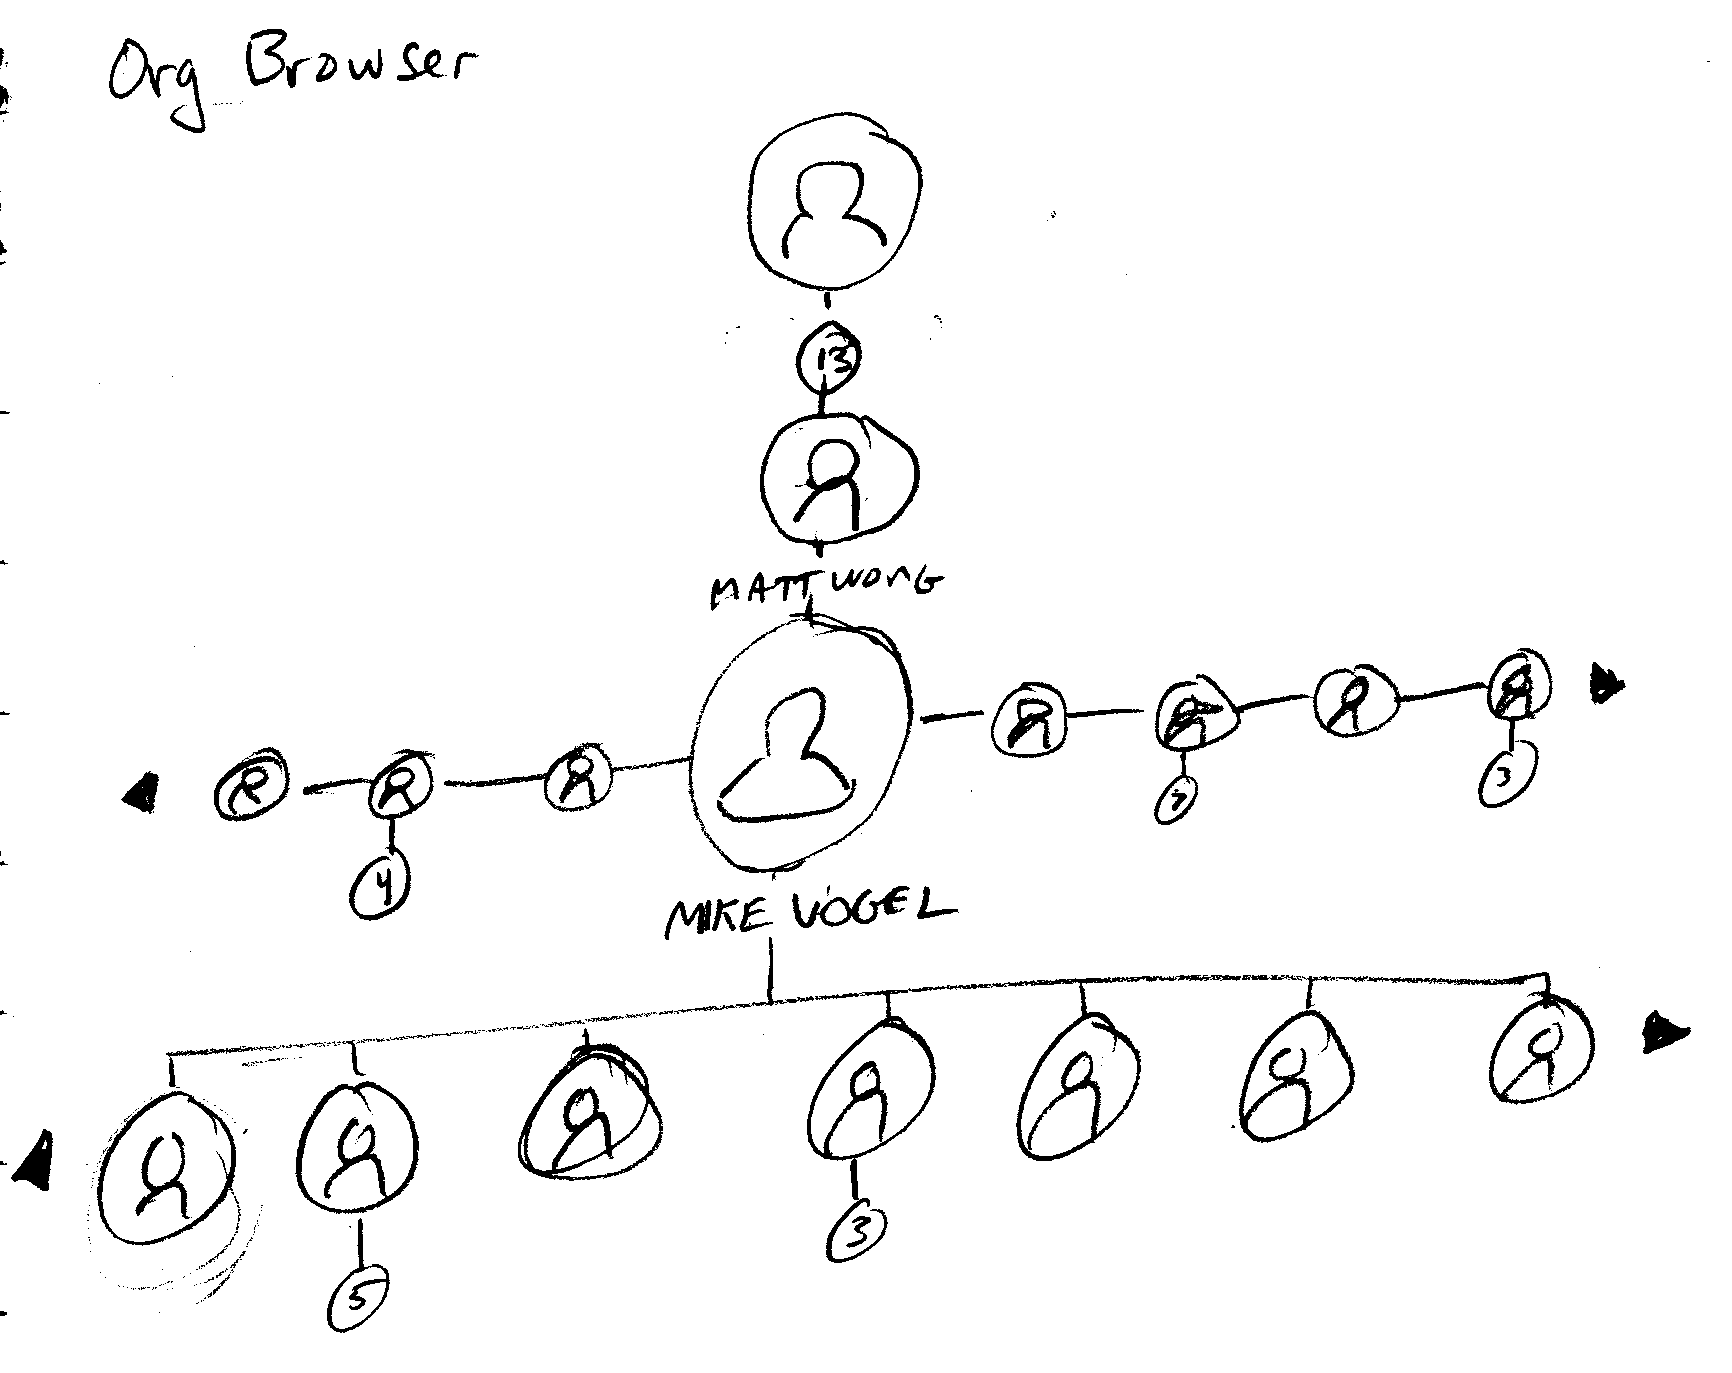 Org Browser
13
MATT WONG
3
4
MIKE VOGEL
3
5